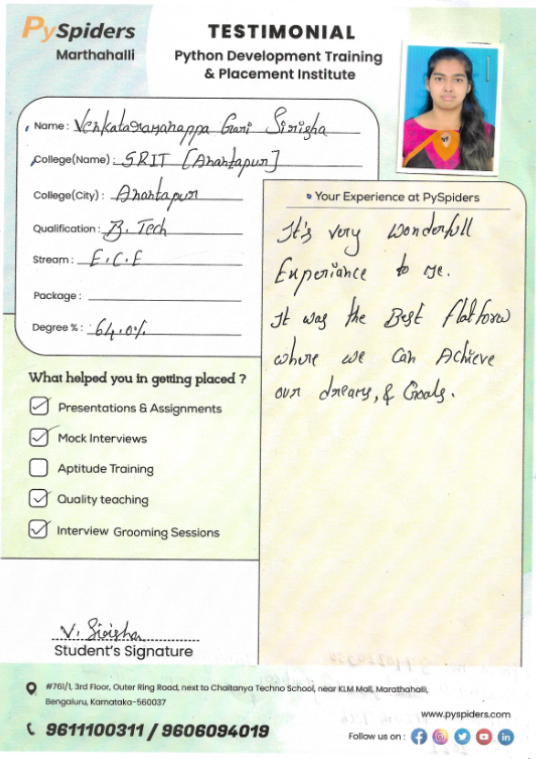 PySpiders
Marthahalli
TESTIMONIAL
Python Development Training
& Placement Institute
Name : Venkataramanappa Gari Sirisha
College(Name) : SRIT [Anantapur]
College(City) : Anantapur
Qualification : B. Tech
Stream : E.C.E
Package :
Degree % : 64.0%
Your Experience at PySpiders
It's very wonderfull
Experiance to me.
It was the Best Flatform
where we can Achieve
our dreams, & Goals.
What helped you in getting placed ?
Presentations & Assignments
Mock Interviews
Aptitude Training
Quality teaching
Interview Grooming Sessions
V. Sirisha
Student's Signature
#761/1, 3rd Floor, Outer Ring Road, next to Chaitanya Techno School, near KLM Mall, Marathahalli,
Bengaluru, Karnataka-560037
9611100311 / 9606094019
www.pyspiders.com
Follow us on :